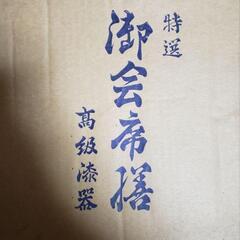 特選
御会席膳
高級漆器